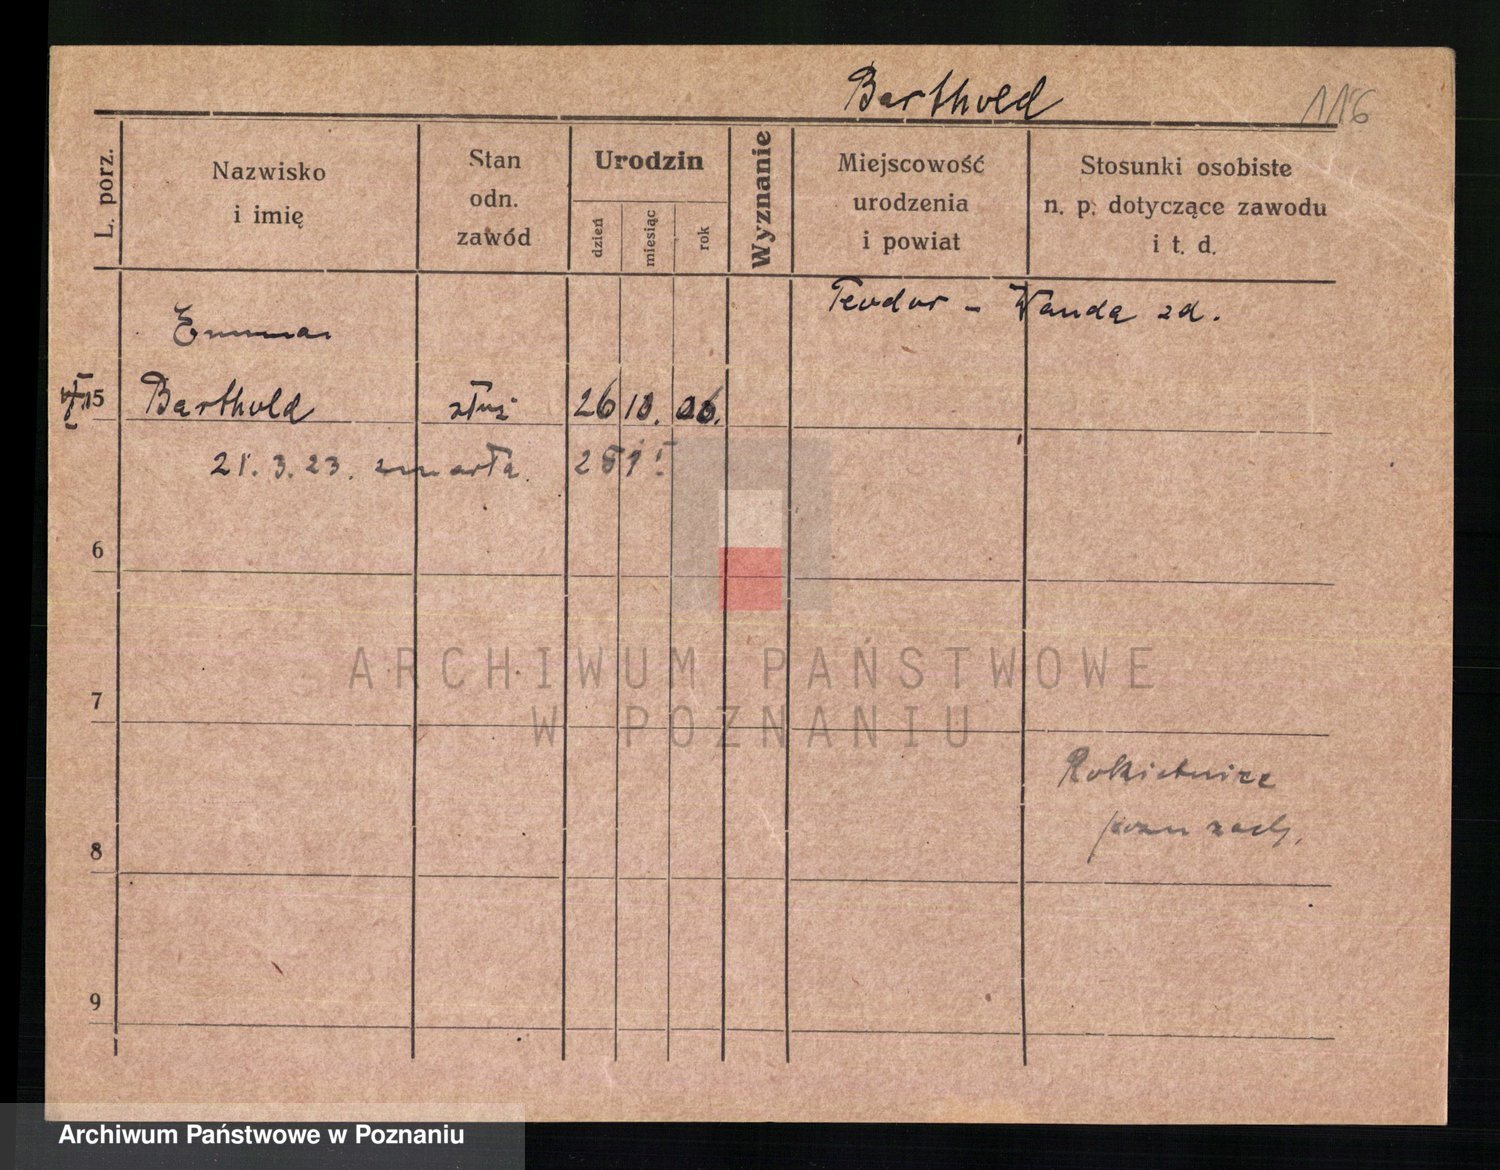 Barthold
116
L. porz.
Nazwisko
i imię
Stan
odn.
zawód
Urodzin
dzień
miesiąc
rok
Wyznanie
Miejscowość
urodzenia
i powiat
Stosunki osobiste
n. p. dotyczące zawodu
i t. d.
Teodor - Wanda zd.
Emma
5 Barthold służ 26 10. 06.
21. 3. 23. zmarła.
6
7
Rokietnica
pozn zach.
8
9
ARCHIWUM PAŃSTWOWE
W POZNANIU
Archiwum Państwowe w Poznaniu